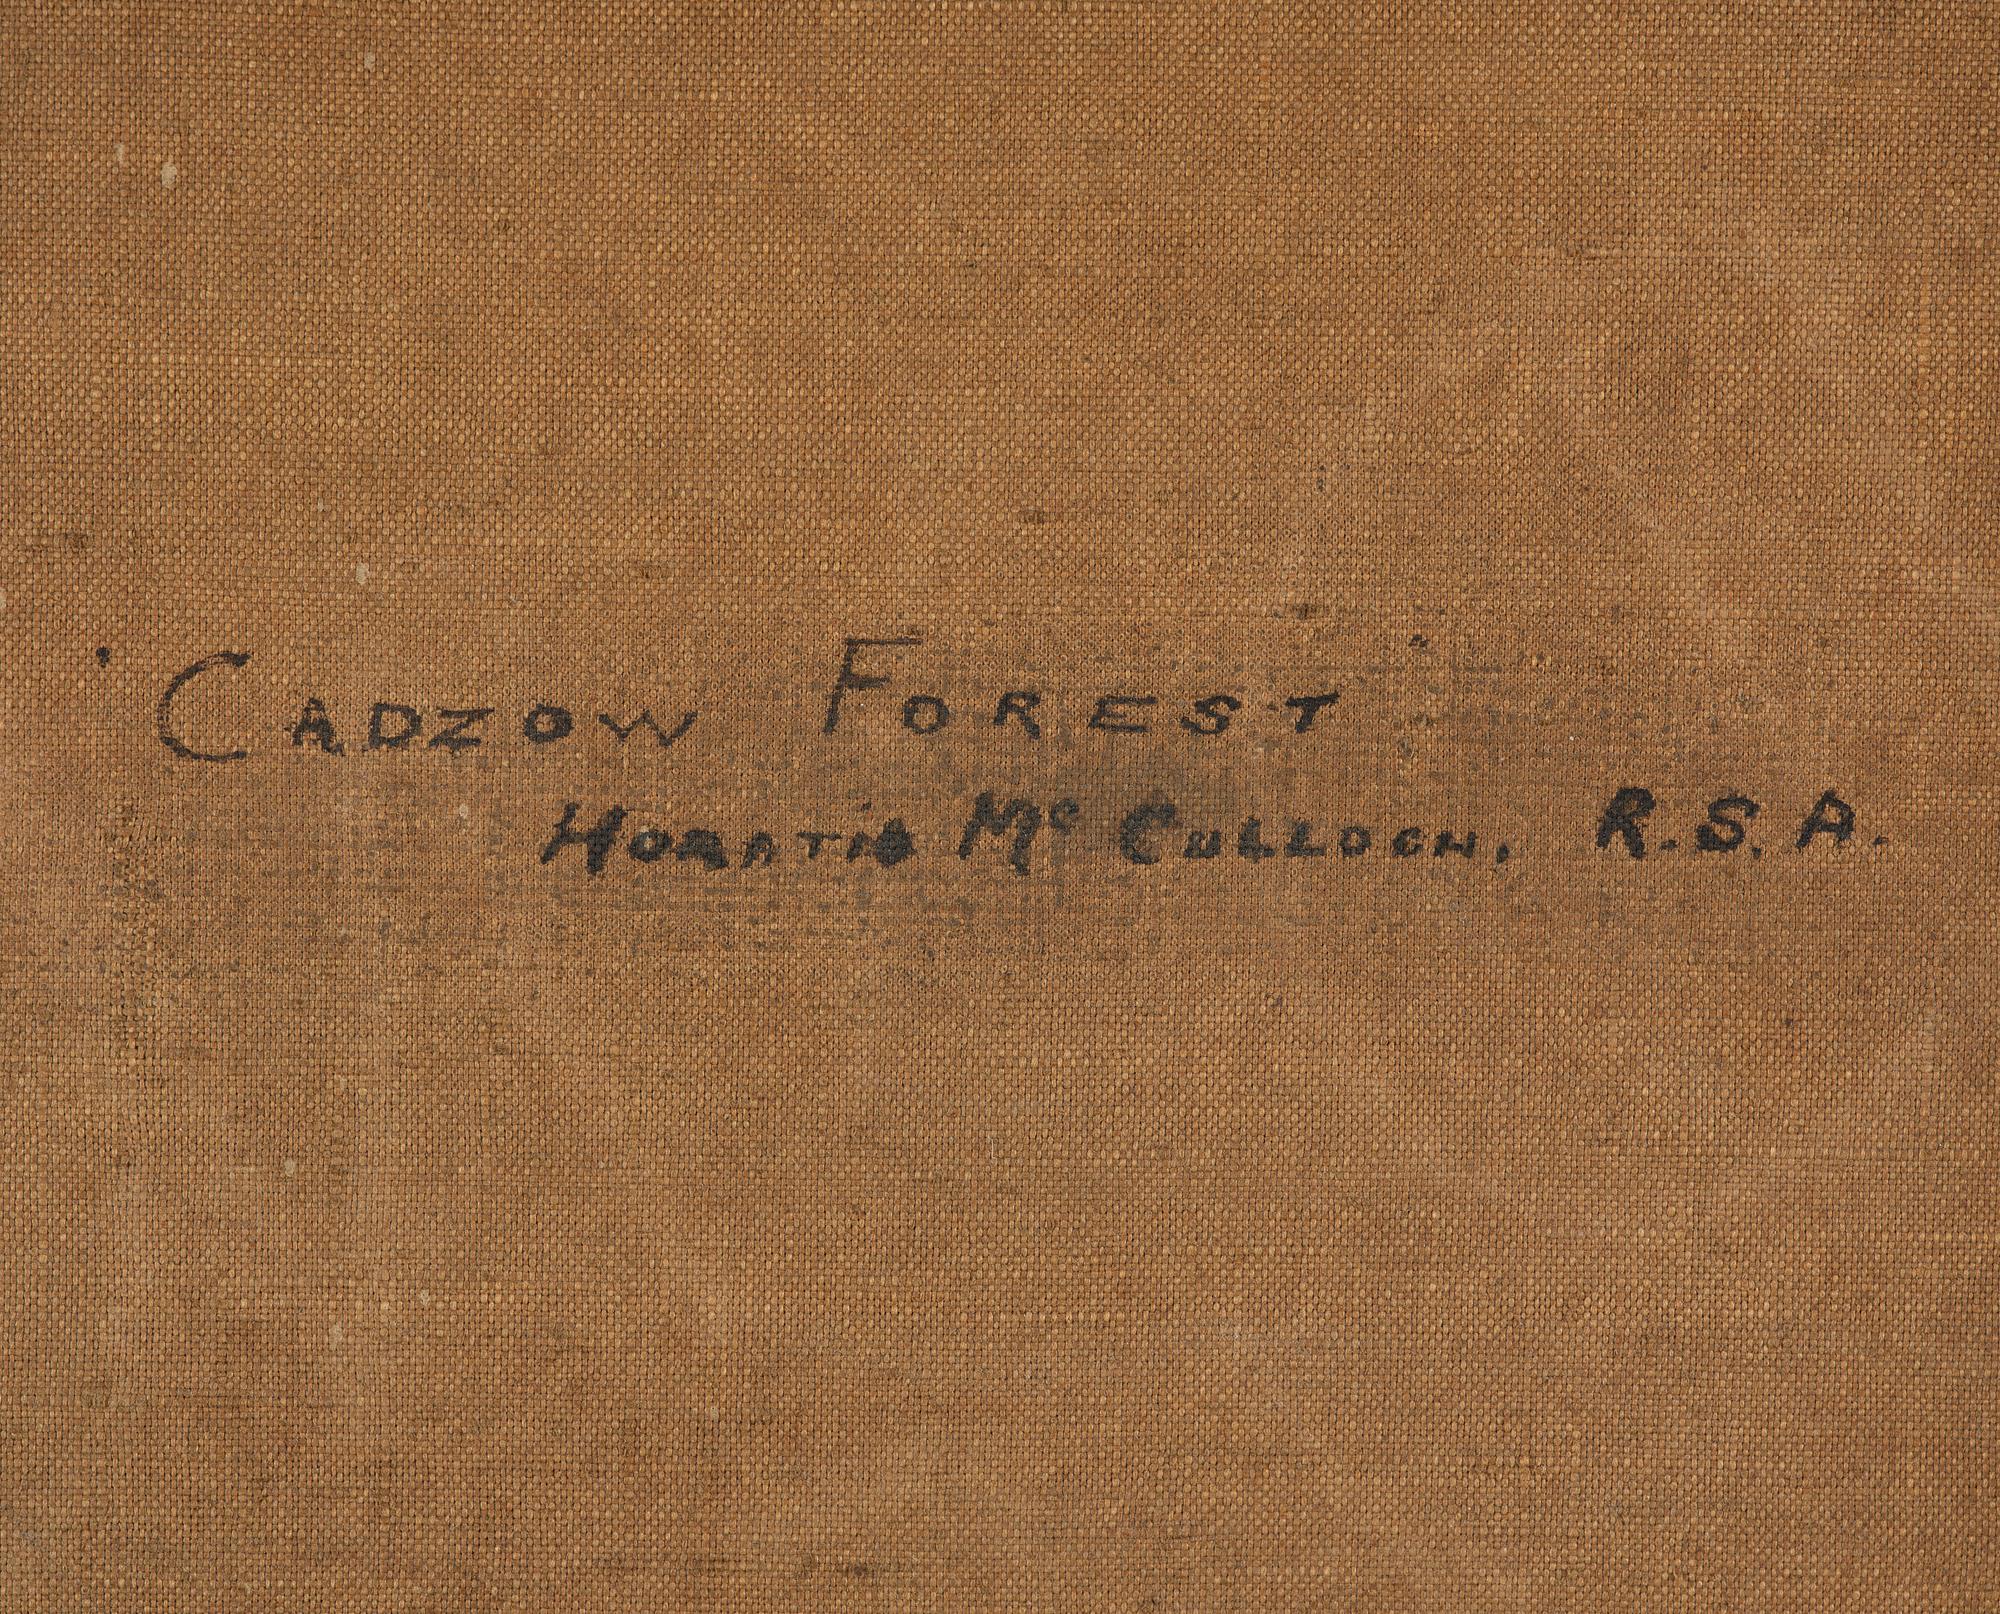 'Cadzow Forest'
Horatio McCulloch, R.S.A.